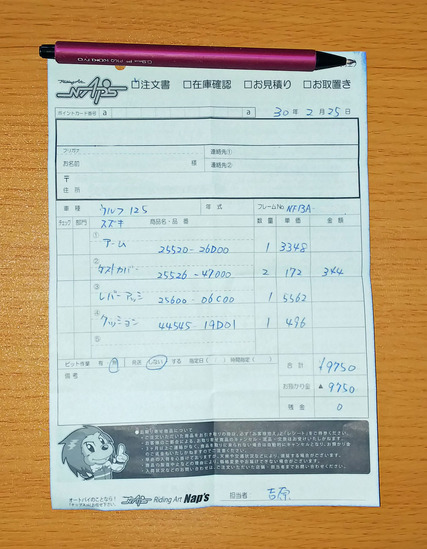 Riding Art
NAPS
注文書 □在庫確認 □お見積り □お取置き
ポイントカード番号 a a 30年 2月 25日
フリガナ 連絡先①
お名前 様 連絡先②
〒
住所
車種 ウルフ125 年式 フレームNo NF13A
スズキ
チェック 部門 商品名・品番 数量 単価 金額
①
アーム 25520-26D00 1 3348
②
ダストカバー 25526-47000 2 172 344
③
レバーアッシ 25600-06C00 1 5562
④
クッション 44545 19D01 1 496
⑤
ピット作業 有 無 発送 しない する 指定日( ) 時間指定( )
備考
合計 ¥9750
お預かり金 ▲ 9750
残金 0
オートバイのことなら!
NAPS Riding Art Nap's
担当者 吉原